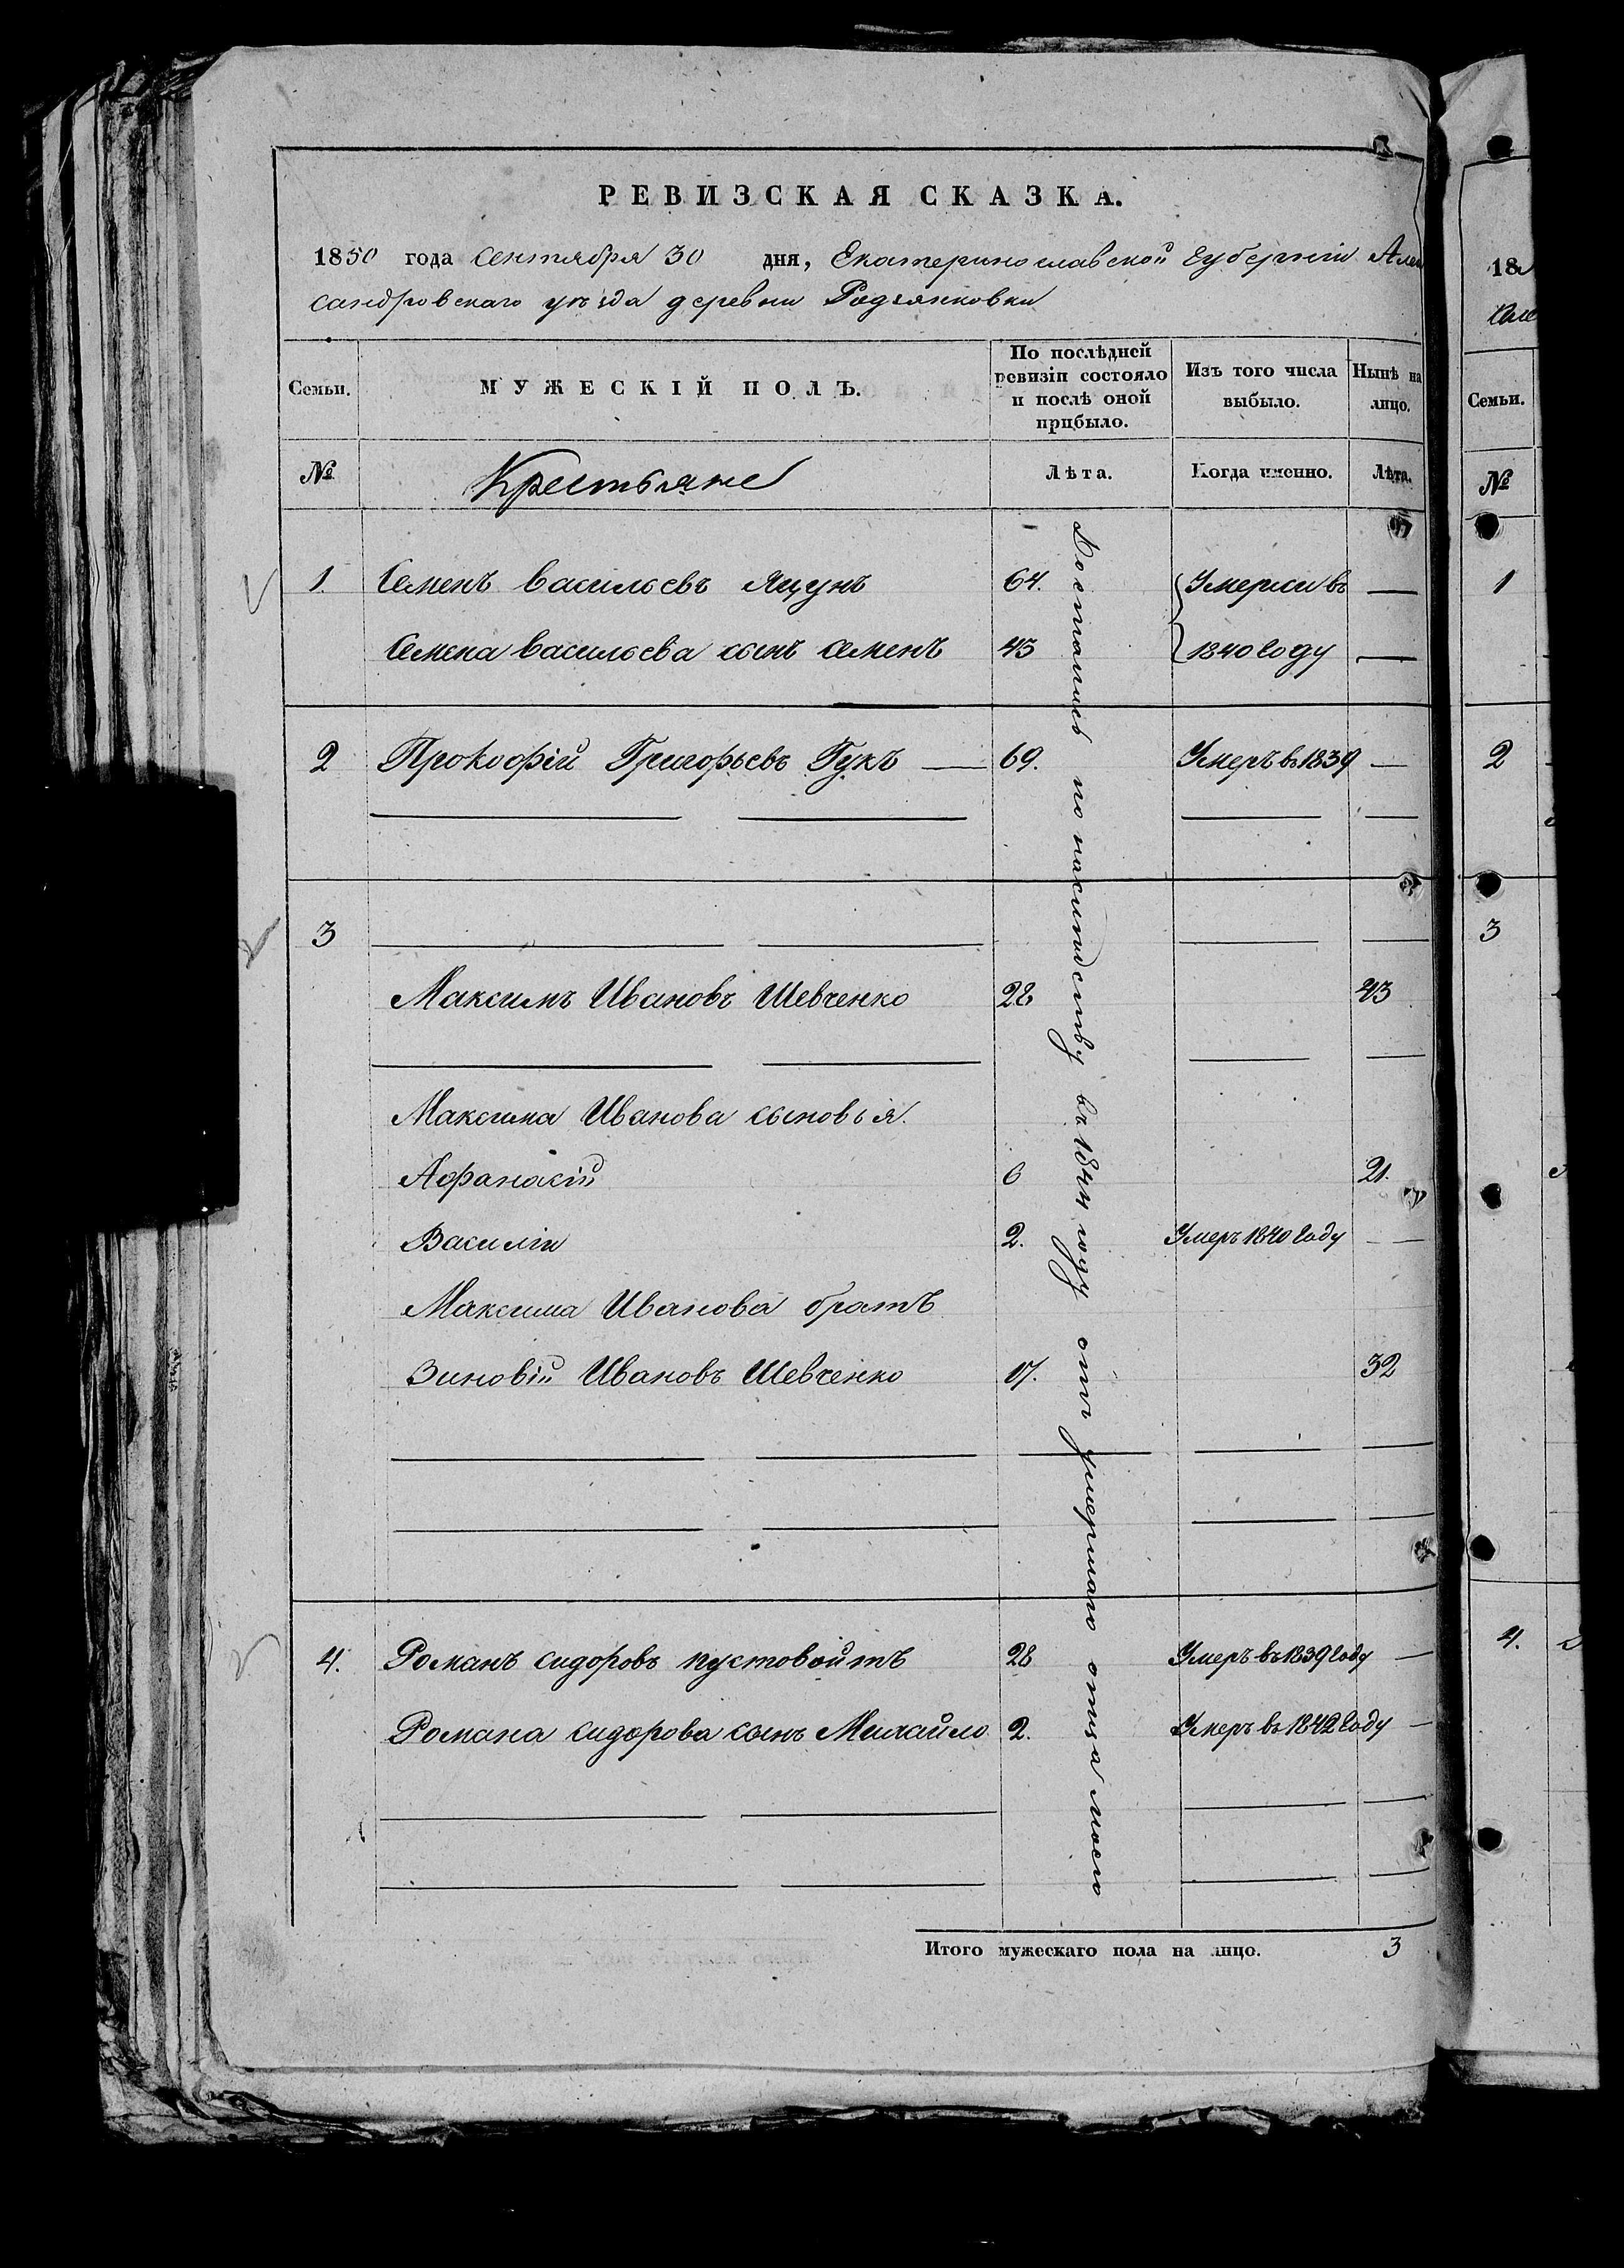 РЕВИЗСКАЯ СКАЗКА.
1850 года Сентября 30 дня, Екатеринославской Губерніи Алек
сандровскаго уѣзда деревни Родзянковки
Семьи. МУЖЕСКІЙ ПОЛЪ. По послѣдней ревизіи состояло и послѣ оной прибыло. Изъ того числа выбыло. Нынѣ на лицо.
№ Крестьяне Лѣта. Когда именно. Лѣта.
1. Семенъ Васильевъ Яцунъ 64. Умерли въ —
Семена Васильева сынъ Семенъ 45 1840 Году —
2 Прокофій Григорьевъ Гукъ — 69. Умеръ въ 1839 —
3
Максимъ Ивановъ Шевченко 28 43
Максима Иванова сыновья.
Афанасій 6 21.
Василій 2. Умеръ 1840 Году —
Максима Иванова братъ
Зиновій Ивановъ Шевченко 17. 32
4. Романъ Сидоровъ Пустовойтъ 28 Умеръ въ 1839 Году —
Романа Сидорова сынъ Михайло 2. Умеръ въ 1842 Году —
Достались по наслѣдству въ 1844 году отъ умершаго отца моего
Итого мужескаго пола на лицо. 3
18
Семьи.
№
1
2
3
4.